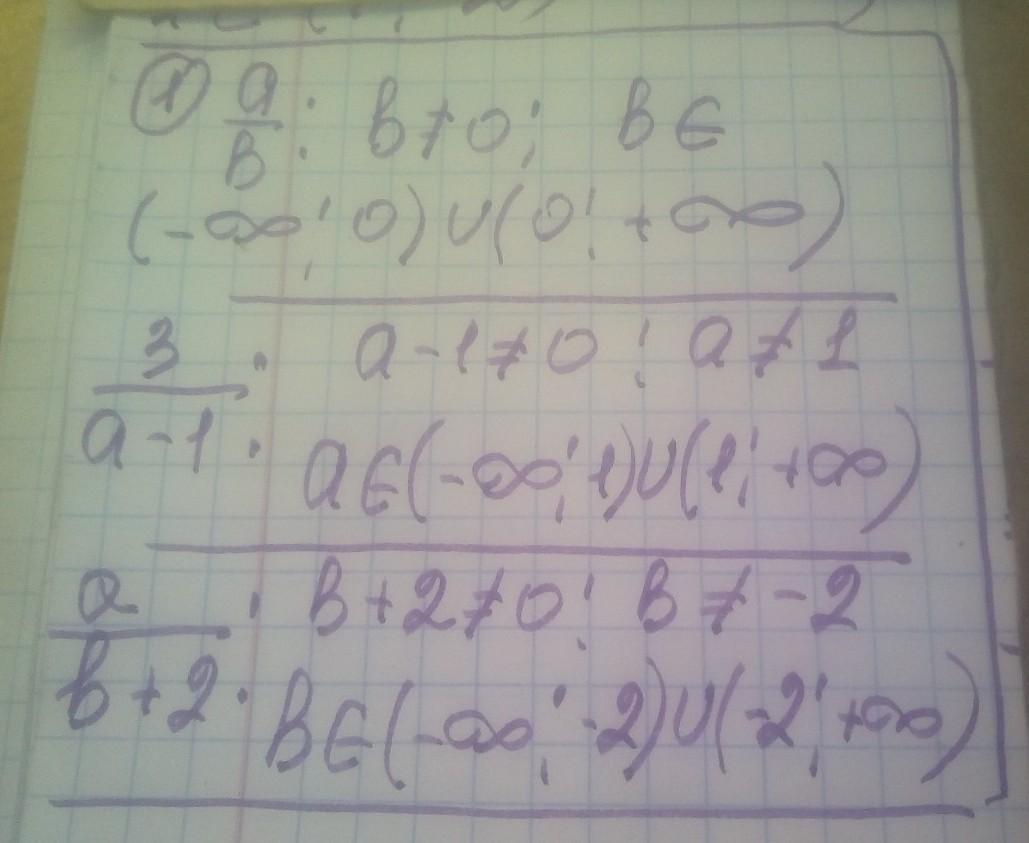 ① a/b : b≠0; b∈
(-∞; 0)∪(0; +∞)
3/(a-1) : a-1≠0; a≠1
a∈(-∞; 1)∪(1; +∞)
a/(b+2) : b+2≠0; b≠-2
b∈(-∞; -2)∪(-2; +∞)